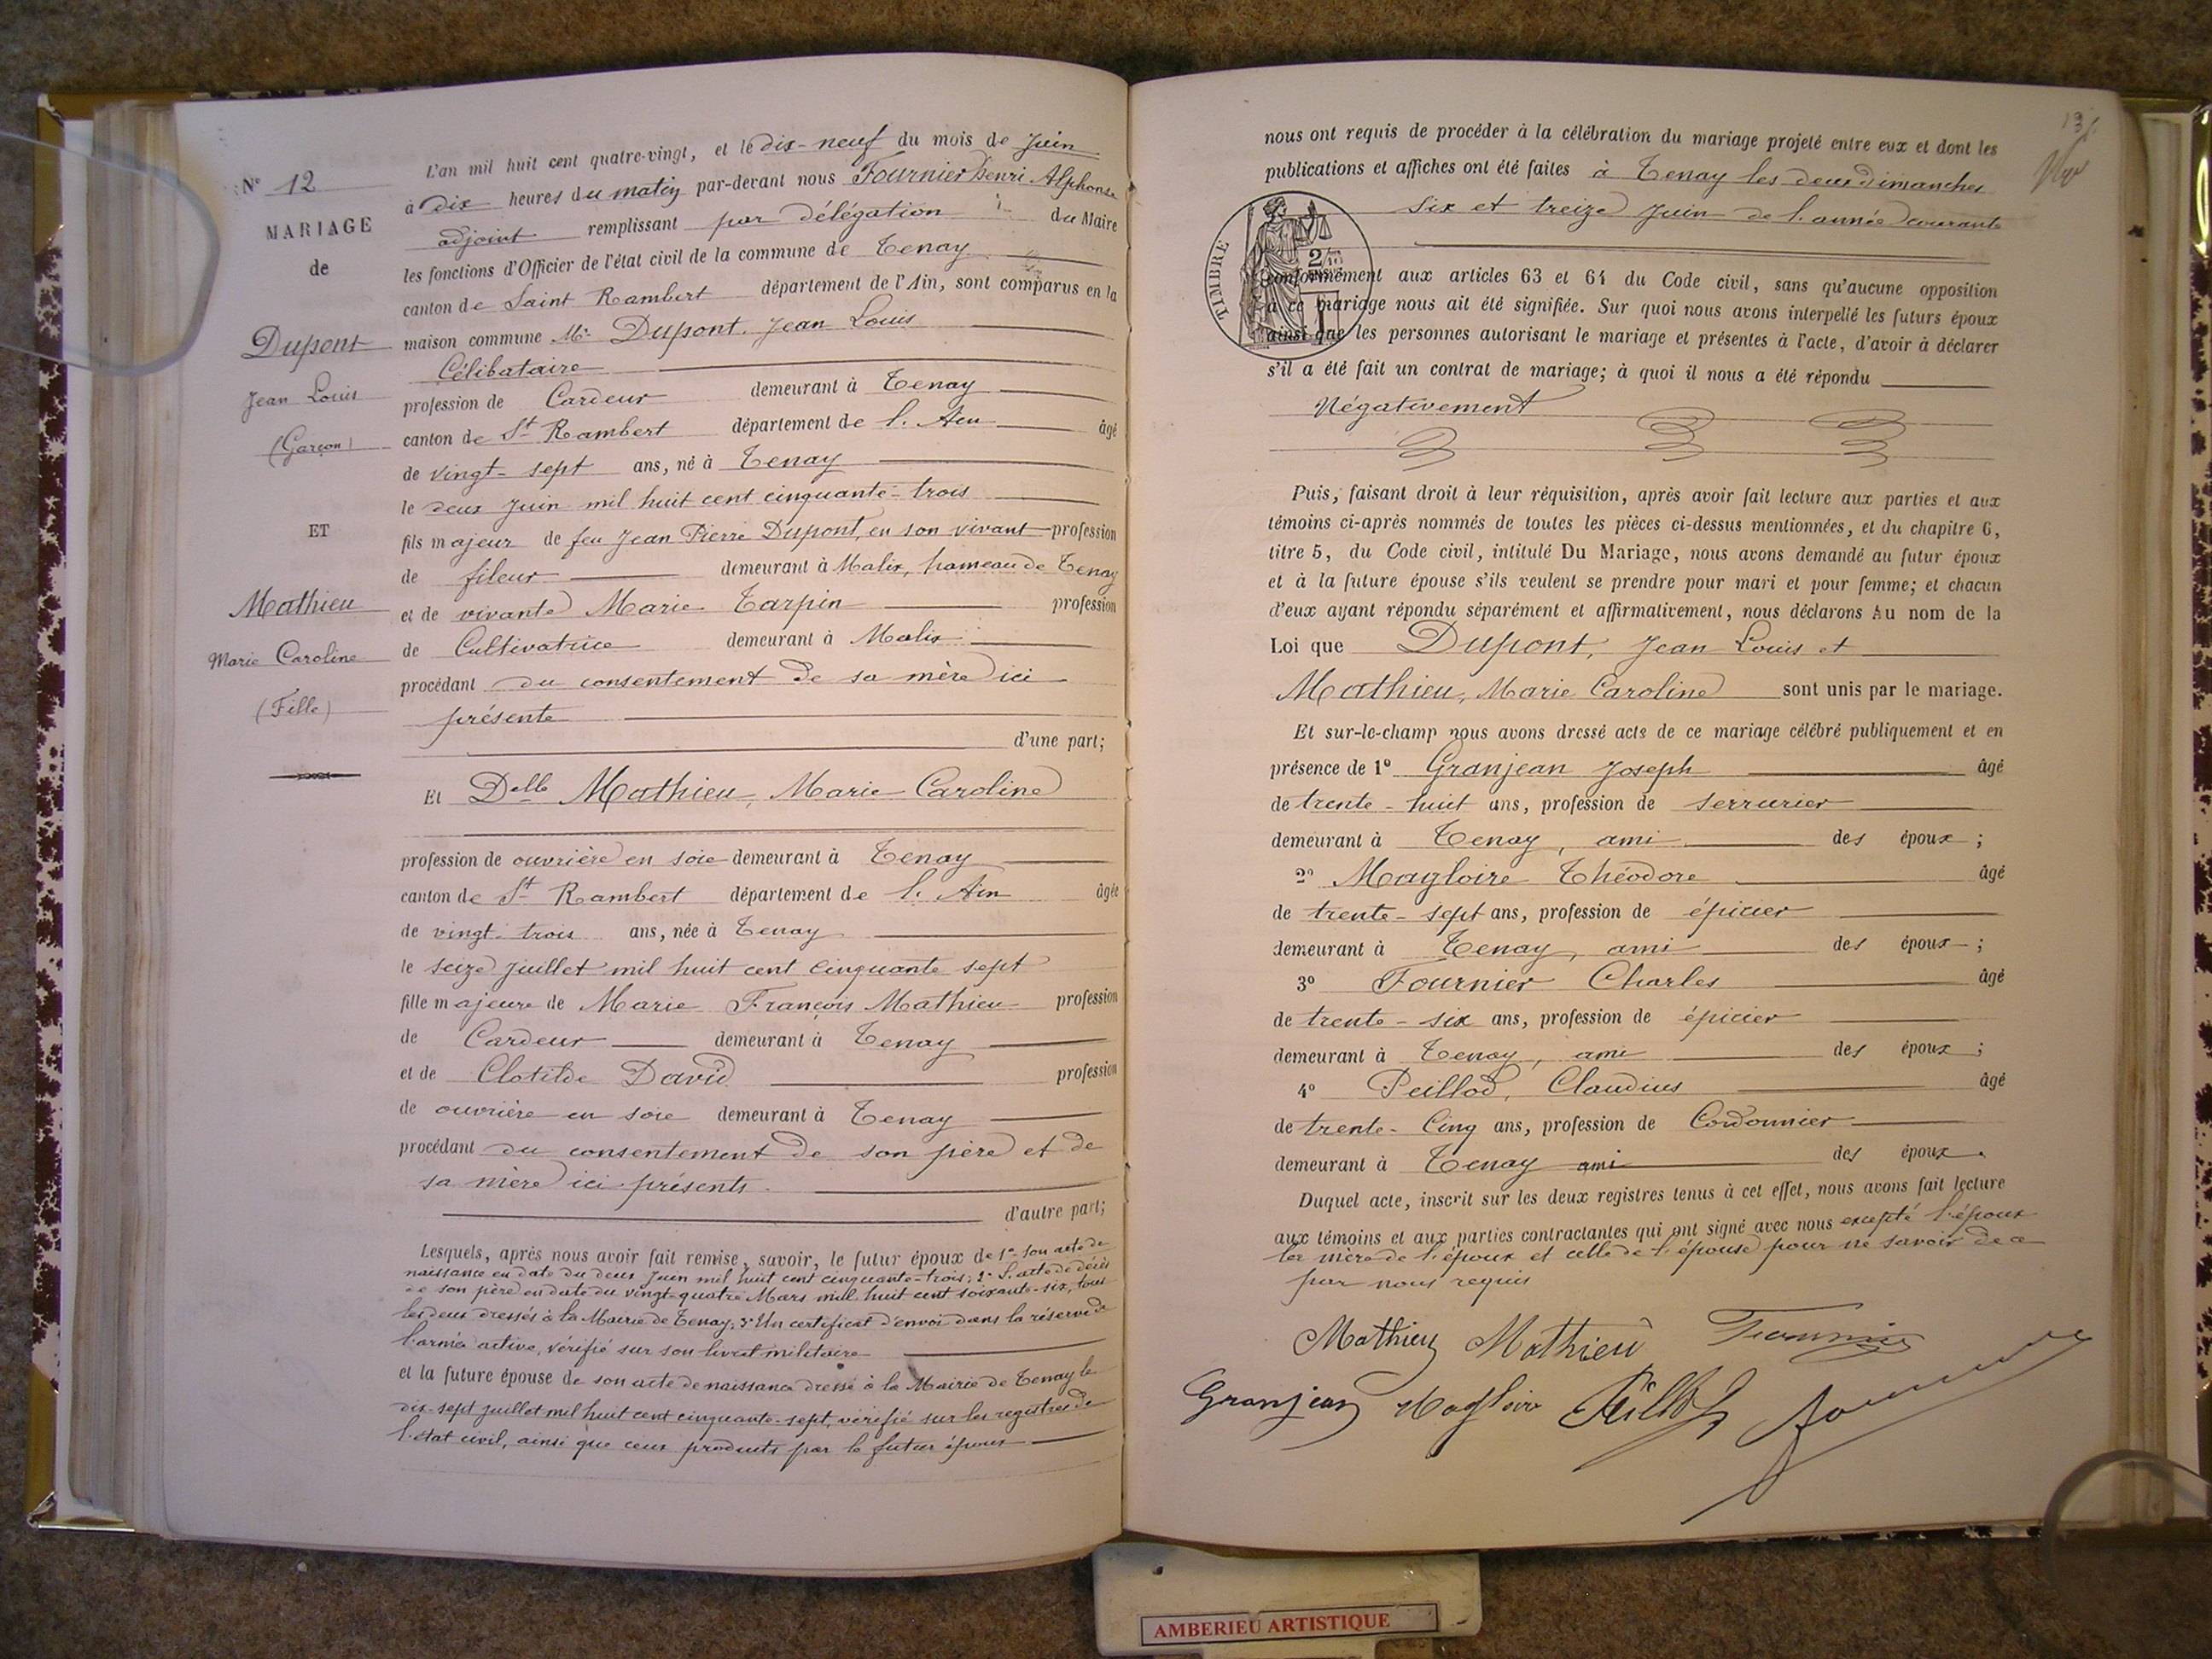 N° 12
MARIAGE
de
Dupont
Jean Louis
(Garçon)
ET
Mathieu
Marie Caroline
(Fille)
L'an mil huit cent quatre-vingt, et le dix-neuf du mois de Juin
à dix heures du matin par-devant nous Fournier Henri Alphonse
adjoint remplissant par délégation du Maire
les fonctions d'Officier de l'état civil de la commune de Tenay
canton de Saint Rambert département de l'Ain, sont comparus en la
maison commune Mr Dupont, Jean Louis
Célibataire
profession de Cardeur demeurant à Tenay
canton de St Rambert département de l'Ain âgé
de vingt-sept ans, né à Tenay
le deux Juin mil huit cent cinquante-trois
fils majeur de feu Jean Pierre Dupont, en son vivant profession
de fileur demeurant à Malix, hameau de Tenay
et de vivante Marie Tarpin profession
de Cultivatrice demeurant à Malix
procédant du consentement de sa mère ici
présente
d'une part;
Et Delle Mathieu, Marie Caroline
profession de ouvrière en soie demeurant à Tenay
canton de St Rambert département de l'Ain âgée
de vingt-trois ans, née à Tenay
le seize Juillet mil huit cent cinquante sept
fille majeure de Marie François Mathieu profession
de Cardeur demeurant à Tenay
et de Clotilde David profession
de ouvrière en soie demeurant à Tenay
procédant du consentement de son père et de
sa mère ici présents.
d'autre part;
Lesquels, après nous avoir fait remise, savoir, le futur époux de 1° son acte de
naissance en date du deux Juin mil huit cent cinquante-trois; 2° L'acte de décès
de son père en date du vingt-quatre Mars mil huit cent soixante-six, tous
les deux dressés à la Mairie de Tenay; 3° Un certificat d'envoi dans la réserve de
l'armée active, vérifié sur son livret militaire
et la future épouse de son acte de naissance dressé à la Mairie de Tenay le
dix-sept Juillet mil huit cent cinquante-sept, vérifié sur les registres de
l'état civil, ainsi que ceux produits par le futur époux
nous ont requis de procéder à la célébration du mariage projeté entre eux et dont les
publications et affiches ont été faites à Tenay les deux dimanches
six et treize Juin de l'année courante
TIMBRE
conformément aux articles 63 et 64 du Code civil, sans qu'aucune opposition
à ce mariage nous ait été signifiée. Sur quoi nous avons interpellé les futurs époux
ainsi que les personnes autorisant le mariage et présentes à l'acte, d'avoir à déclarer
s'il a été fait un contrat de mariage; à quoi il nous a été répondu
Négativement
Puis, faisant droit à leur réquisition, après avoir fait lecture aux parties et aux
témoins ci-après nommés de toutes les pièces ci-dessus mentionnées, et du chapitre 6,
titre 5, du Code civil, intitulé Du Mariage, nous avons demandé au futur époux
et à la future épouse s'ils veulent se prendre pour mari et pour femme; et chacun
d'eux ayant répondu séparément et affirmativement, nous déclarons Au nom de la
Loi que Dupont, Jean Louis et
Mathieu, Marie Caroline sont unis par le mariage.
Et sur-le-champ nous avons dressé acte de ce mariage célébré publiquement et en
présence de 1° Granjean Joseph âgé
de trente-huit ans, profession de serrurier
demeurant à Tenay, ami des époux;
2° Magloire Théodore âgé
de trente-sept ans, profession de épicier
demeurant à Tenay, ami des époux;
3° Fournier Charles âgé
de trente-six ans, profession de épicier
demeurant à Tenay, ami des époux;
4° Peillod, Claudius âgé
de trente-Cinq ans, profession de Cordonnier
demeurant à Tenay ami des époux.
Duquel acte, inscrit sur les deux registres tenus à cet effet, nous avons fait lecture
aux témoins et aux parties contractantes qui ont signé avec nous excepté l'époux
la mère de l'époux et celle de l'épouse pour ne savoir de ce
par nous requis
Mathieu Mathieu Fournier
Granjean Magloire Peillod
AMBERIEU ARTISTIQUE